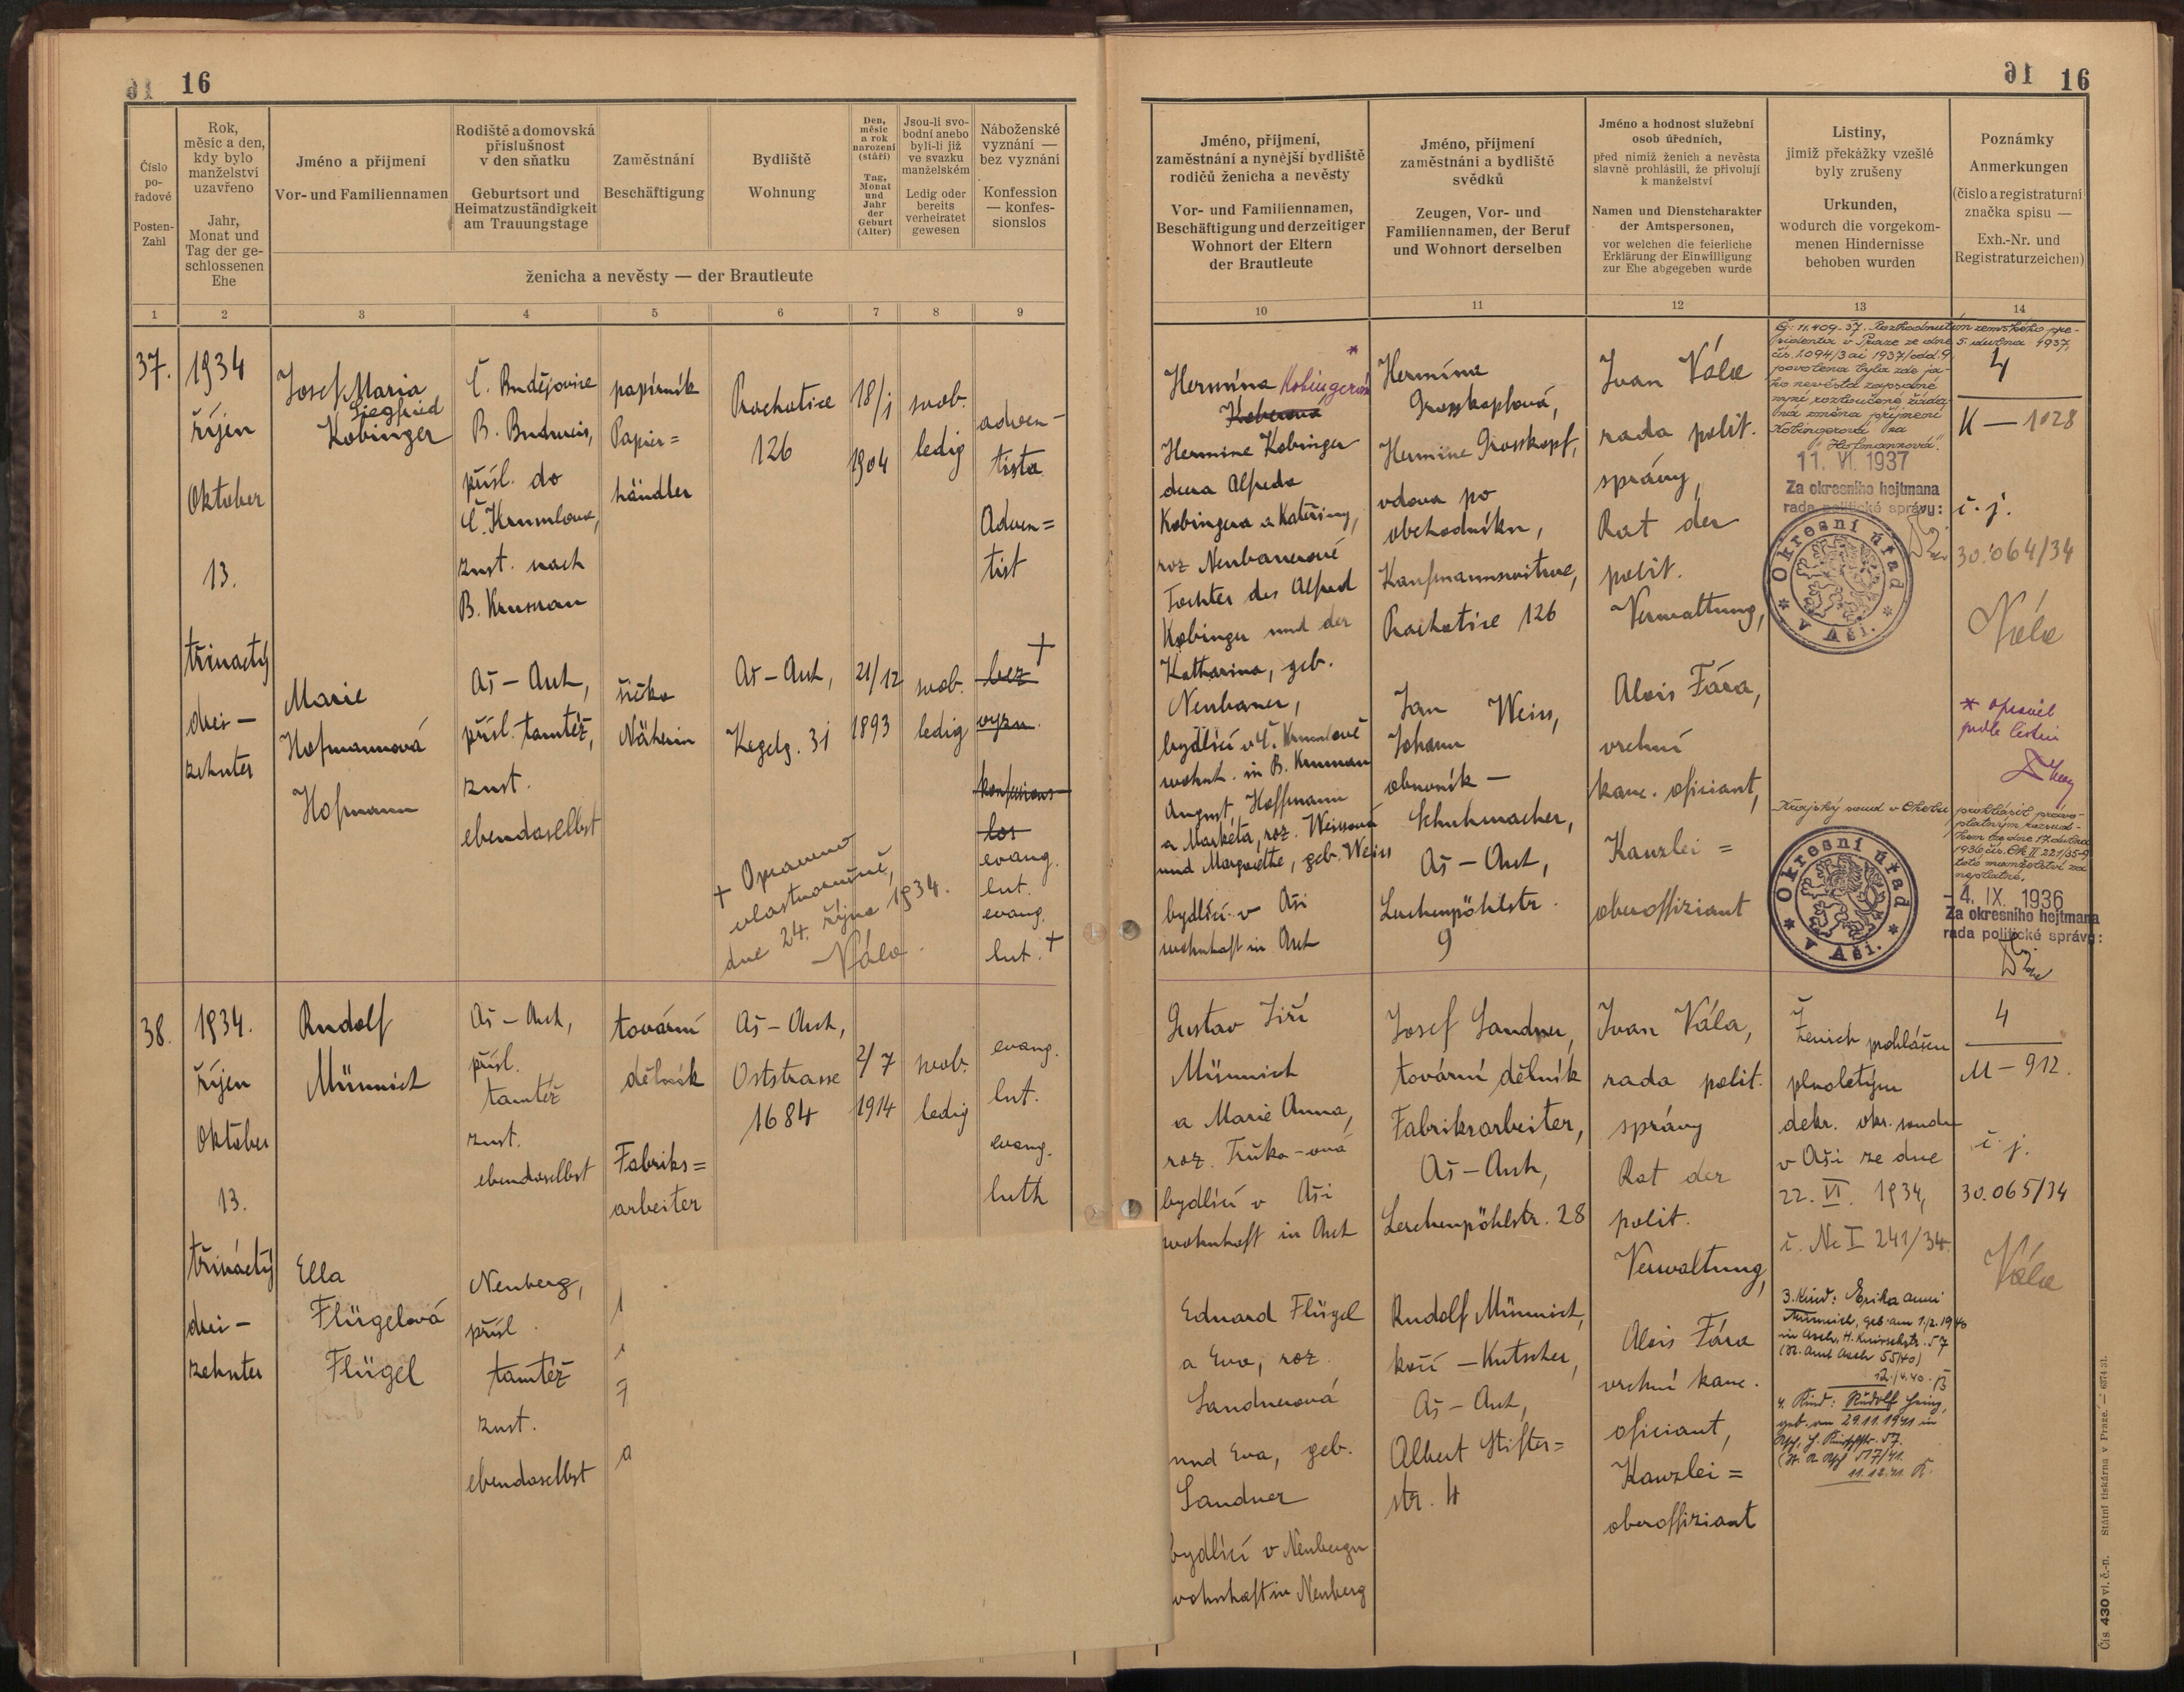 16
16
Číslo
po-
řadové
Posten-
Zahl
Rok,
měsíc a den,
kdy bylo
manželství
uzavřeno
Jahr,
Monat und
Tag der ge-
schlossenen
Ehe
Jméno a přijmení
Vor- und Familiennamen
Rodiště a domovská
příslušnost
v den sňatku
Geburtsort und
Heimatzuständigkeit
am Trauungstage
Zaměstnání
Beschäftigung
Bydliště
Wohnung
Den,
měsíc
a rok
narození
(stáří)
Tag,
Monat
und
Jahr
der
Geburt
(Alter)
Jsou-li svo-
bodní anebo
byli-li již
ve svazku
manželském
Ledig oder
bereits
verheiratet
gewesen
Náboženské
vyznání —
bez vyznání
Konfession
— konfes-
sionslos
ženicha a nevěsty — der Brautleute
1 2 3 4 5 6 7 8 9
37.
1934
říjen
Oktober
13.
třináctý
drei-
zehnter
Josef Maria
Siegfried
Kobinger
Č. Budějovice
B. Budweis,
přísl. do
Č. Krumlova,
zust. nach
B. Krumau
papírník
Papier=
händler
Prachatice
126
18/1
1904
svob.
ledig
adven-
tista
Adven=
tist
Marie
Hofmannová
Hofmann
Aš-Asch,
přísl. tamtéž,
zust.
ebendaselbst
šička
Näherin
Aš-Asch,
Kegelg. 31
21/12
1893
svob.
ledig
+
bez
vyzn.
konfessions-
los
evang.
lut.
evang.
lut. +
+ Opraveno
vlastnoručně,
dne 24. října 1934.
Vála
38.
1934.
říjen
Oktober
13.
třináctý
drei-
zehnter
Rudolf
Münnich
Aš-Asch,
přísl.
tamtéž
zust.
ebendaselbst
tovární
dělník
Fabriks=
arbeiter
Aš-Asch,
Oststrasse
1684
2/7
1914
svob.
ledig
evang.
lut.
evang.
luth
Ella
Flügelová
Flügel
Neuberg,
přísl.
tamtéž
zust.
ebendaselbst
16
16
Jméno, přijmení,
zaměstnání a nynější bydliště
rodičů ženicha a nevěsty
Vor- und Familiennamen,
Beschäftigung und derzeitiger
Wohnort der Eltern
der Brautleute
Jméno, přijmení
zaměstnání a bydliště
svědků
Zeugen, Vor- und
Familiennamen, der Beruf
und Wohnort derselben
Jméno a hodnost služební
osob úředních,
před nimiž ženich a nevěsta
slavně prohlásili, že přivolují
k manželství
Namen und Dienstcharakter
der Amtspersonen,
vor welchen die feierliche
Erklärung der Einwilligung
zur Ehe abgegeben wurde
Listiny,
jimiž překážky vzešlé
byly zrušeny
Urkunden,
wodurch die vorgekom-
menen Hindernisse
behoben wurden
Poznámky
Anmerkungen
(číslo a registraturní
značka spisu —
Exh.-Nr. und
Registraturzeichen)
10 11 12 13 14
*
Hermína Kobingerová
Hermine Kobinger
dcera Alfreda
Kobingera a Kateřiny,
roz Neubauerové
Tochter des Alfred
Kobinger und der
Katharina, geb.
Neubauer,
bydlící v Č. Krumlově
wohnh. in B. Krumau
August Hoffmann
a Markéta, roz. Weissová
und Margarethe, geb. Weiss
bydlící v Aši
wohnhaft in Asch
Hermína
Grosskopfová,
Hermine Grosskopf,
vdova po
obchodníku,
Kaufmannswitwe,
Prachatice 126
Jan Weiss,
Johann
obuvník-
Schuhmacher,
Aš-Asch,
Lerchenpöhlstr.
9
Ivan Vála
rada polit.
správy,
Rat der
polit.
Verwaltung,
Alois Fára,
vrchní
kanc. oficiant,
Kanzlei=
oberoffiziant
Čj: 11.409-37. Rozhodnutím zemského pre-
sidenta v Praze ze dne 5. dubna 1937,
čís. 1094/3 ai 1937/odd. 9
povolena byla zde ja-
ko nevěsta zapsané
nyní rozloučené žáda-
ná změna příjmení
Kobingerová na
"Hofmannová".
11. VI. 1937
Za okresního hejtmana
rada politické správy:
Okresní úřad
* v Aši. *
4
K-1028
č. j.
30.064/34
Vála
* opravil
podle listin
Krajský soud v Chebu prohlásil pravo-
platným rozsud-
kem ze dne 17. dubna
1936 čís. Ck II 221/35-9
toto manželství za
neplatné.
- 4. IX. 1936
Za okresního hejtmana
rada politické správy:
Okresní úřad
* v Aši. *
Gustav Jiří
Münnich
a Marie Anna,
roz. Trůka-ová
bydlící v Aši
wohnhaft in Asch
Eduard Flügel
a Eva, roz.
Sandnerová
und Eva, geb.
Sandner
bydlící v Neubergu
wohnhaft in Neuberg
Josef Sandner,
tovární dělník
Fabriksarbeiter,
Aš-Asch,
Lerchenpöhlstr. 28
Rudolf Münnich,
kočí-Kutscher,
Aš-Asch,
Albert Stifter=
str. 4
Ivan Vála,
rada polit.
správy
Rat der
polit.
Verwaltung,
Alois Fára
vrchní kanc.
oficiant,
Kanzlei=
oberoffiziant
Ženich prohlášen
plnoletým
dekr. okr. soudu
v Aši ze dne
22. VI. 1934,
č. Nc I 241/34.
3. Kind: Erika Anni
Münnich, geb. am 1/2. 1940
in Asch, H. Knirschstr. 57
(St. Amt Asch 55/40)
12./4.40.
4. Kind: Rudolf
geb. am 29.11.1941 in
Asch, H. Knirschstr. 57.
517/41.
11.12.41. K.
4
M-912.
č. j.
30.065/34
Vála
Čís. 430 vl. č.-n. Státní tiskárna v Praze. — 6374 31.